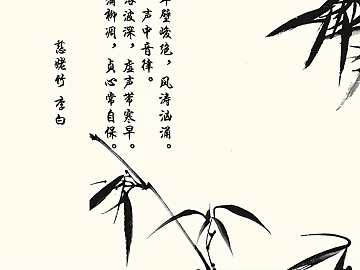 壁峻绝，风涛汹涌。
声中音律。
波深，虚声带寒早。
柳凋，贞心常自保。
慈姥竹 李白